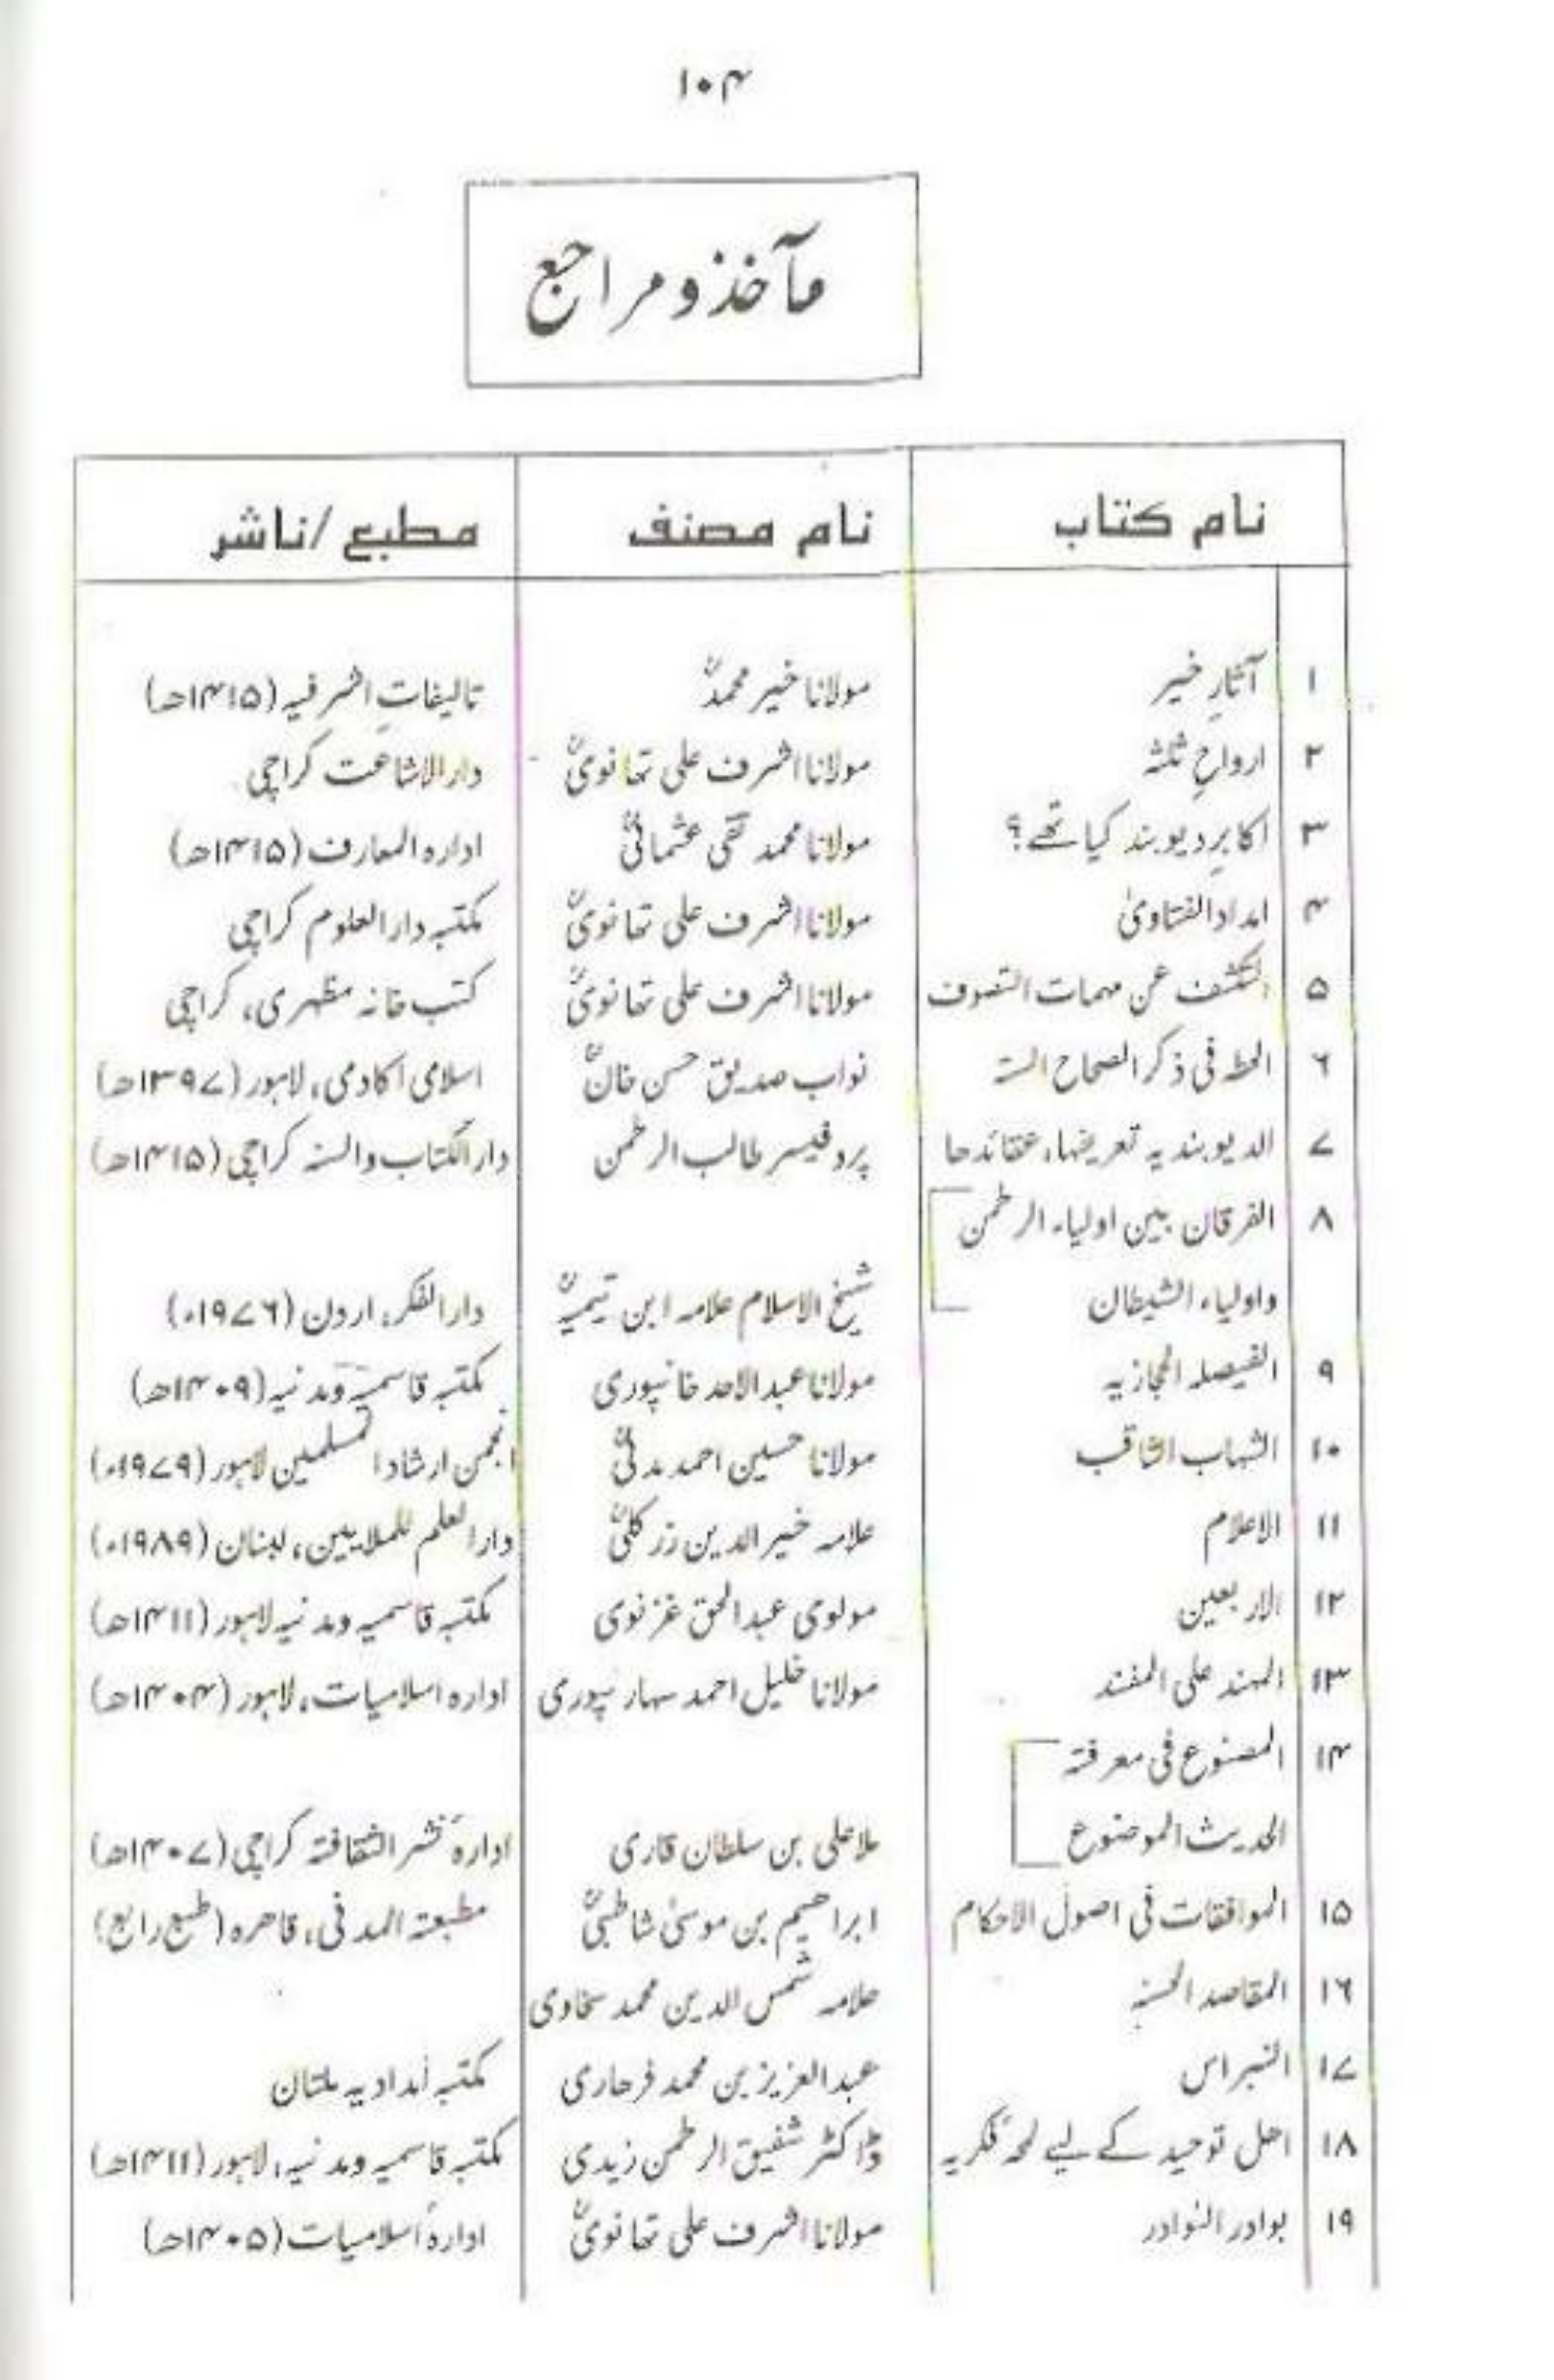 ۱۰۴
مآخذ و مراجع
نام کتاب نام مصنف مطبع/ناشر
۱ آثارِ خیر مولانا خیر محمدؒ تالیفاتِ اشرفیہ (۱۴۱۵ھ)
۲ ارواحِ ثلٰثہ مولانا اشرف علی تھانویؒ دارالاشاعت کراچی
۳ اکابرِ دیوبند کیا تھے؟ مولانا محمد تقی عثمانیؒ ادارہ المعارف (۱۴۱۵ھ)
۴ امدادالفتاویٰ مولانا اشرف علی تھانویؒ مکتبہ دارالعلوم کراچی
۵ التکشف عن مہمات التصوف مولانا اشرف علی تھانویؒ کتب خانہ مظہری، کراچی
۶ الحطہ فی ذکر الصحاح الستہ نواب صدیق حسن خانؒ اسلامی اکادمی، لاہور (۱۳۹۷ھ)
۷ الدیوبندیہ تعریفہا، عقائدھا پروفیسر طالب الرحمٰن دارالکتاب والسنہ کراچی (۱۴۱۵ھ)
۸ الفرقان بین اولیاء الرحمٰن
واولیاء الشیطان شیخ الاسلام علامہ ابن تیمیہؒ دارالفکر، اردن (۱۹۷۶ء)
۹ الفیصلہ الحجازیہ مولانا عبدالاحد خانپوری مکتبہ قاسمیہ ومدنیہ (۱۴۰۹ھ)
۱۰ الشہاب الثاقب مولانا حسین احمد مدنیؒ انجمن ارشاد المسلمین لاہور (۱۹۷۹ء)
۱۱ الاعلام علامہ خیر الدین زرکلیؒ دارالعلم للملایین، لبنان (۱۹۸۹ء)
۱۲ الاربعین مولوی عبدالحق غزنوی مکتبہ قاسمیہ ومدنیہ لاہور (۱۴۱۱ھ)
۱۳ المہند علی المفند مولانا خلیل احمد سہارنپوری ادارہ اسلامیات، لاہور (۱۴۰۴ھ)
۱۴ المصنوع فی معرفتہ
الحدیث الموضوع ملا علی بن سلطان قاری ادارہ نشر الثقافتہ کراچی (۱۴۰۷ھ)
۱۵ الموافقات فی اصول الاحکام ابراھیم بن موسیٰ شاطبیؒ مطبعتہ المدنی، قاھرہ (طبع رابع)
۱۶ المقاصد الحسنہ علامہ شمس الدین محمد سخاوی
۱۷ النبراس عبدالعزیز بن محمد فرھاری مکتبہ امدادیہ ملتان
۱۸ اھل توحید کے لیے لمحہ فکریہ ڈاکٹر شفیق الرحمٰن زیدی مکتبہ قاسمیہ ومدنیہ، لاہور (۱۴۱۱ھ)
۱۹ بوادر النوادر مولانا اشرف علی تھانویؒ ادارہ اسلامیات (۱۴۰۵ھ)